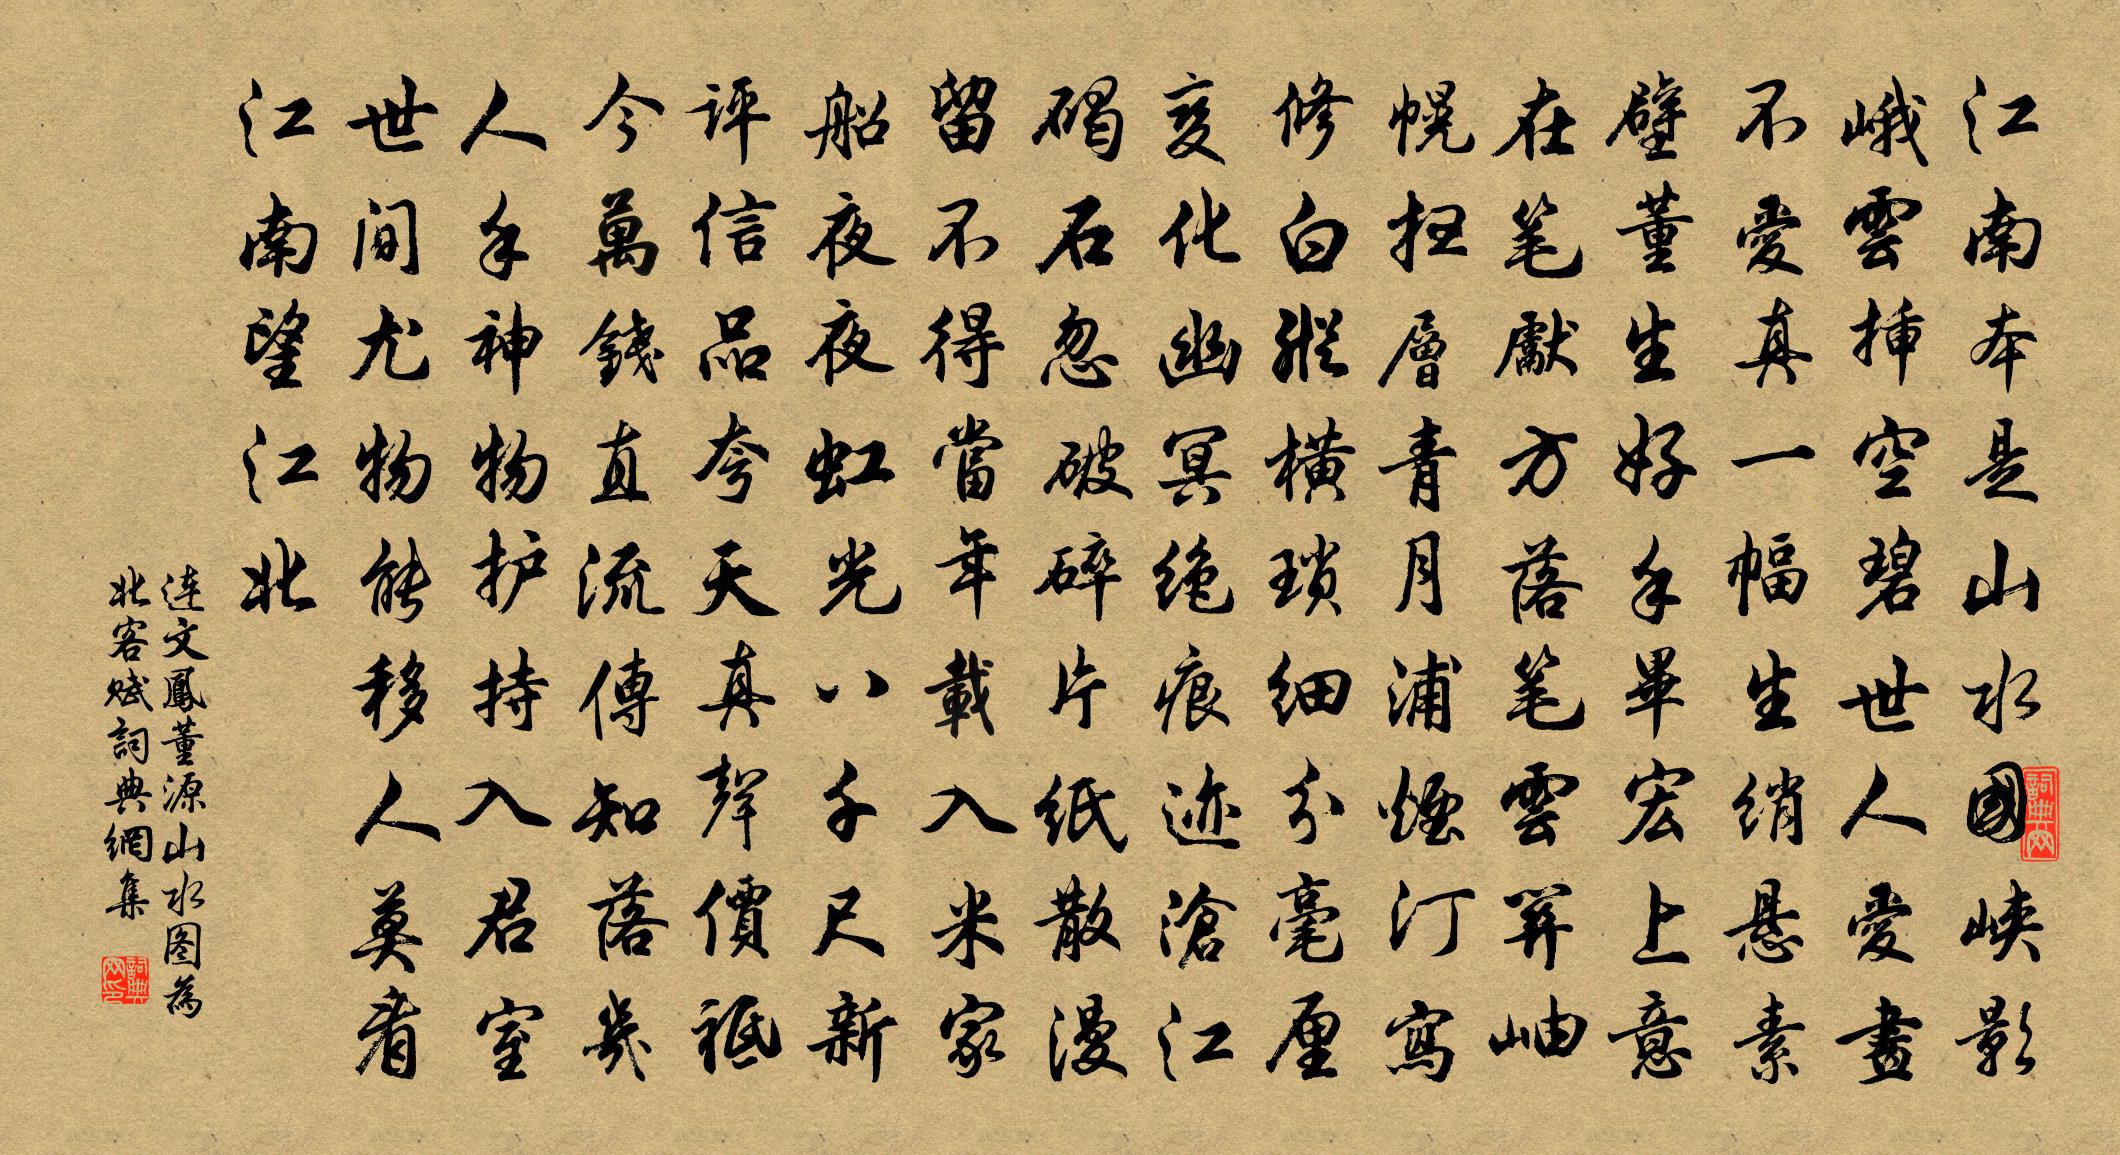 江南本是山水國峽影
峨雲挿空碧世人愛畫
不愛真一幅生綃懸素
壁董生好手畢宏上意
在笔獻方落笔雲昇岫
幌扫層青月浦煙汀寫
修白縱橫瑣细分毫厘
变化幽冥绝痕迹滄江
碣石忽破碎片纸散漫
留不得當年載入米家
船夜夜虹光八千尺新
評信品夸天真聲價祗
今萬錢直流傳知落幾
人手神物护持入君室
世间尤物能移人莫看
江南望江北
连文鳳董源山水图為
北客赋詞典網集
詞典网
詞典网印